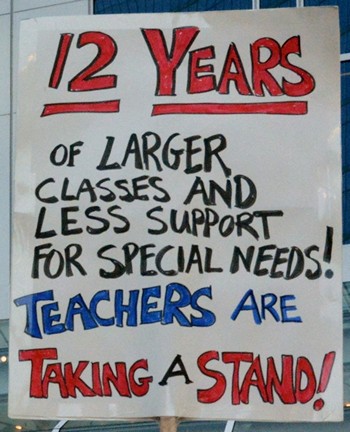 12 YEARS
OF LARGER
CLASSES AND
LESS SUPPORT
FOR SPECIAL NEEDS!
TEACHERS ARE
TAKING A STAND!